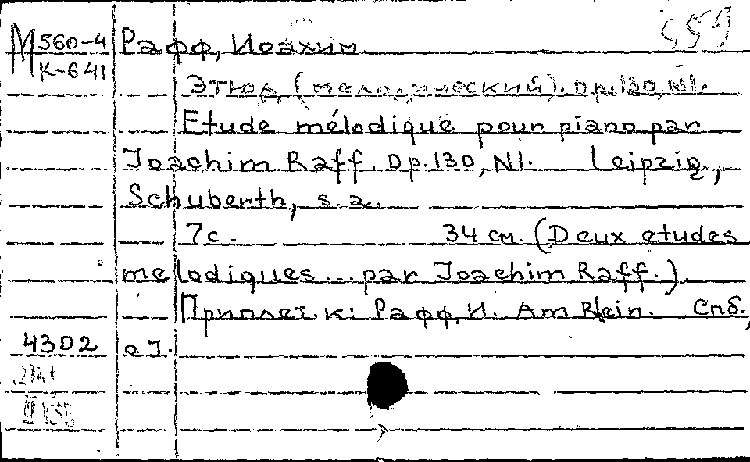 М560-4 Рафф, Иоахим 559
К-641
Этюд (мелодический). Op.130, N1.
Etude mélodique pour piano par
Joachim Raff. Op.130, N1. Leipzig,
Schuberth, s.a.
7с. 34 см. (Deux etudes
melodiques... par Joachim Raff.)
Приплет к: Рафф, И. Am Rhein. Спб,
4302 о.г.